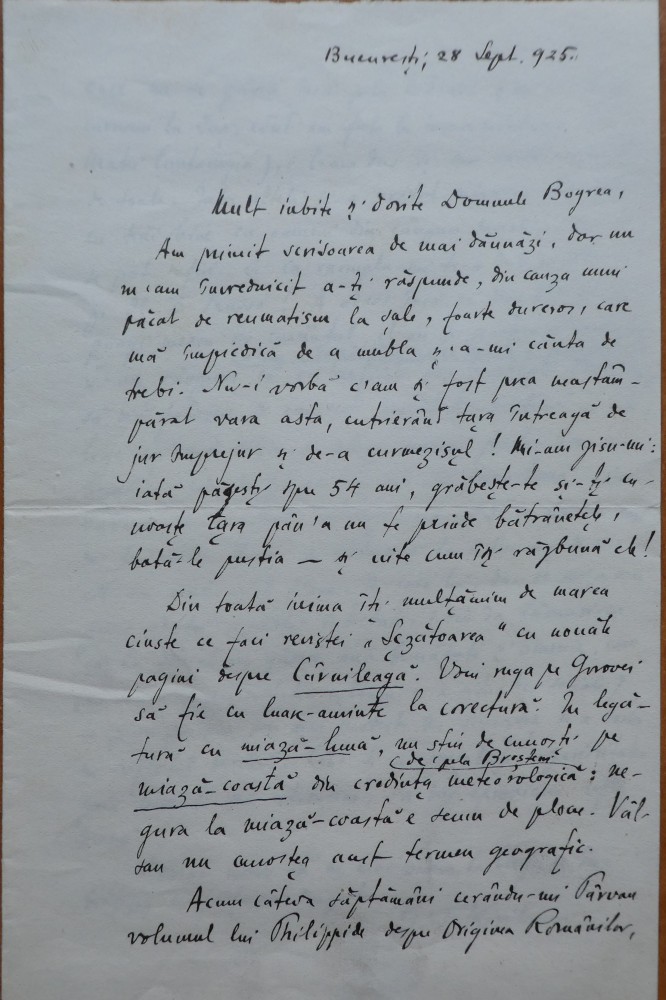 București, 28 Sept. 925.
Mult iubite și dorite Domnule Bogrea,
Am primit scrisoarea de mai dăunăzi, dar nu
m'am învrednicit a-ți răspunde, din cauza unui
păcat de reumatism la șale, foarte dureros, care
mă împiedică de a umbla și a-mi căuta de
trebi. Nu-i vorbă c'am și fost prea neastâm-
părat vara asta, cutrierând țara întreagă de
jur împrejur și de-a curmezișul! Mi-am zisu-mi:
iată pășești spre 54 ani, grăbește-te și-ți cu-
noaște țara pân'a nu te prinde bătrânețele,
bată-le pustia — și uite cum îți răzbună ele!
Din toată inima îți mulțămim de marea
cinste ce faci revistei „Șezătoarea" cu nouăle
pagini despre Cârnileagă. Voiu ruga pe Gorovei
să fie cu luare-aminte la corectură. În legă-
tură cu miază-lună, nu știu de cunoști pe
(de pela Broșteni)
miază-coastă din credința meteorologică: ne-
gura la miază-coastă e semn de ploae. Vâl-
san nu cunoștea acest termen geografic.
Acum câteva săptămâni cerându-mi Pârvan
volumul lui Philippide despre Originea Românilor,